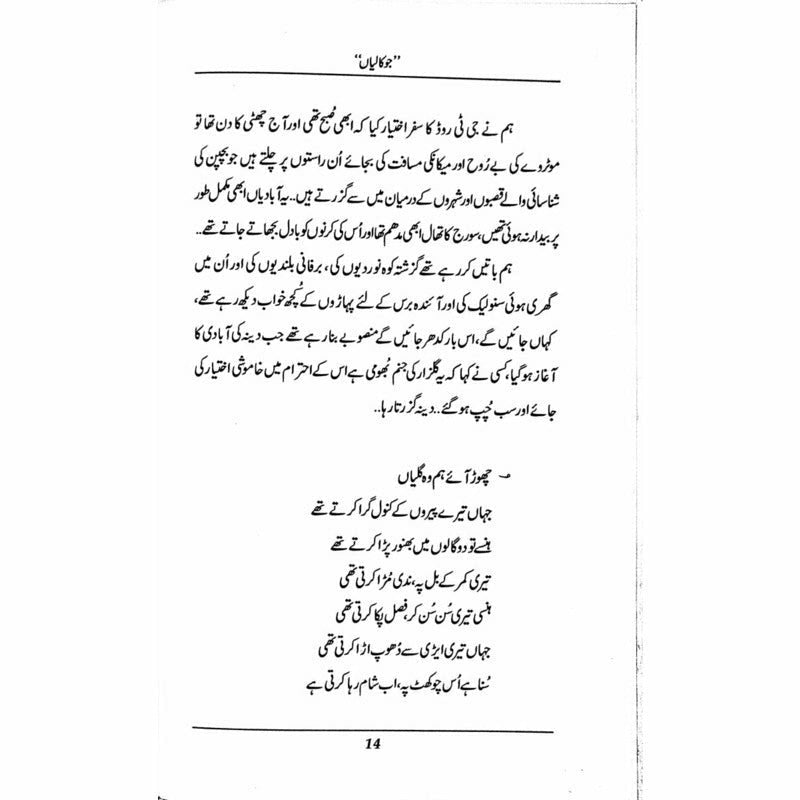 ”جوکالیاں“
ہم نے جی ٹی روڈ کا سفر اختیار کیا کہ ابھی صُبح تھی اور آج چھٹی کا دن تھا تو
موٹروے کی بے رُوح اور میکانکی مسافت کی بجائے اُن راستوں پر چلتے ہیں جو بچپن کی
شناسائی والے قصبوں اور شہروں کے درمیان میں سے گزرتے ہیں.. یہ آبادیاں ابھی مکمل طور
پر بیدار نہ ہوئی تھیں، سورج کا تھال ابھی مدھم تھا اور اُس کی کرنوں کو بادل بجھاتے جاتے تھے..
ہم باتیں کر رہے تھے گزشتہ کوہ نوردیوں کی، برفانی بلندیوں کی اور اُن میں
گھری ہوئی سنولیک کی اور آئندہ برس کے لئے پہاڑوں کے کُچھ خواب دیکھ رہے تھے،
کہاں جائیں گے، اس بار کدھر جائیں گے منصوبے بنا رہے تھے جب دینہ کی آبادی کا
آغاز ہو گیا، کسی نے کہا کہ یہ گلزار کی جنم بُھومی ہے اس کے احترام میں خاموشی اختیار کی
جائے اور سب چُپ ہو گئے.. دینہ گزرتا رہا..
؎ چھوڑ آئے ہم وہ گلیاں
جہاں تیرے پیروں کے کنول گرا کرتے تھے
ہنسے تو دو گالوں میں بھنور پڑا کرتے تھے
تیری کمر کے بل پہ، ندی مُڑا کرتی تھی
ہنسی تیری سُن سُن کر، فصل پکا کرتی تھی
جہاں تیری ایڑی سے دُھوپ اڑا کرتی تھی
سُنا ہے اُس چوکھٹ پہ، اب شام رہا کرتی ہے
14